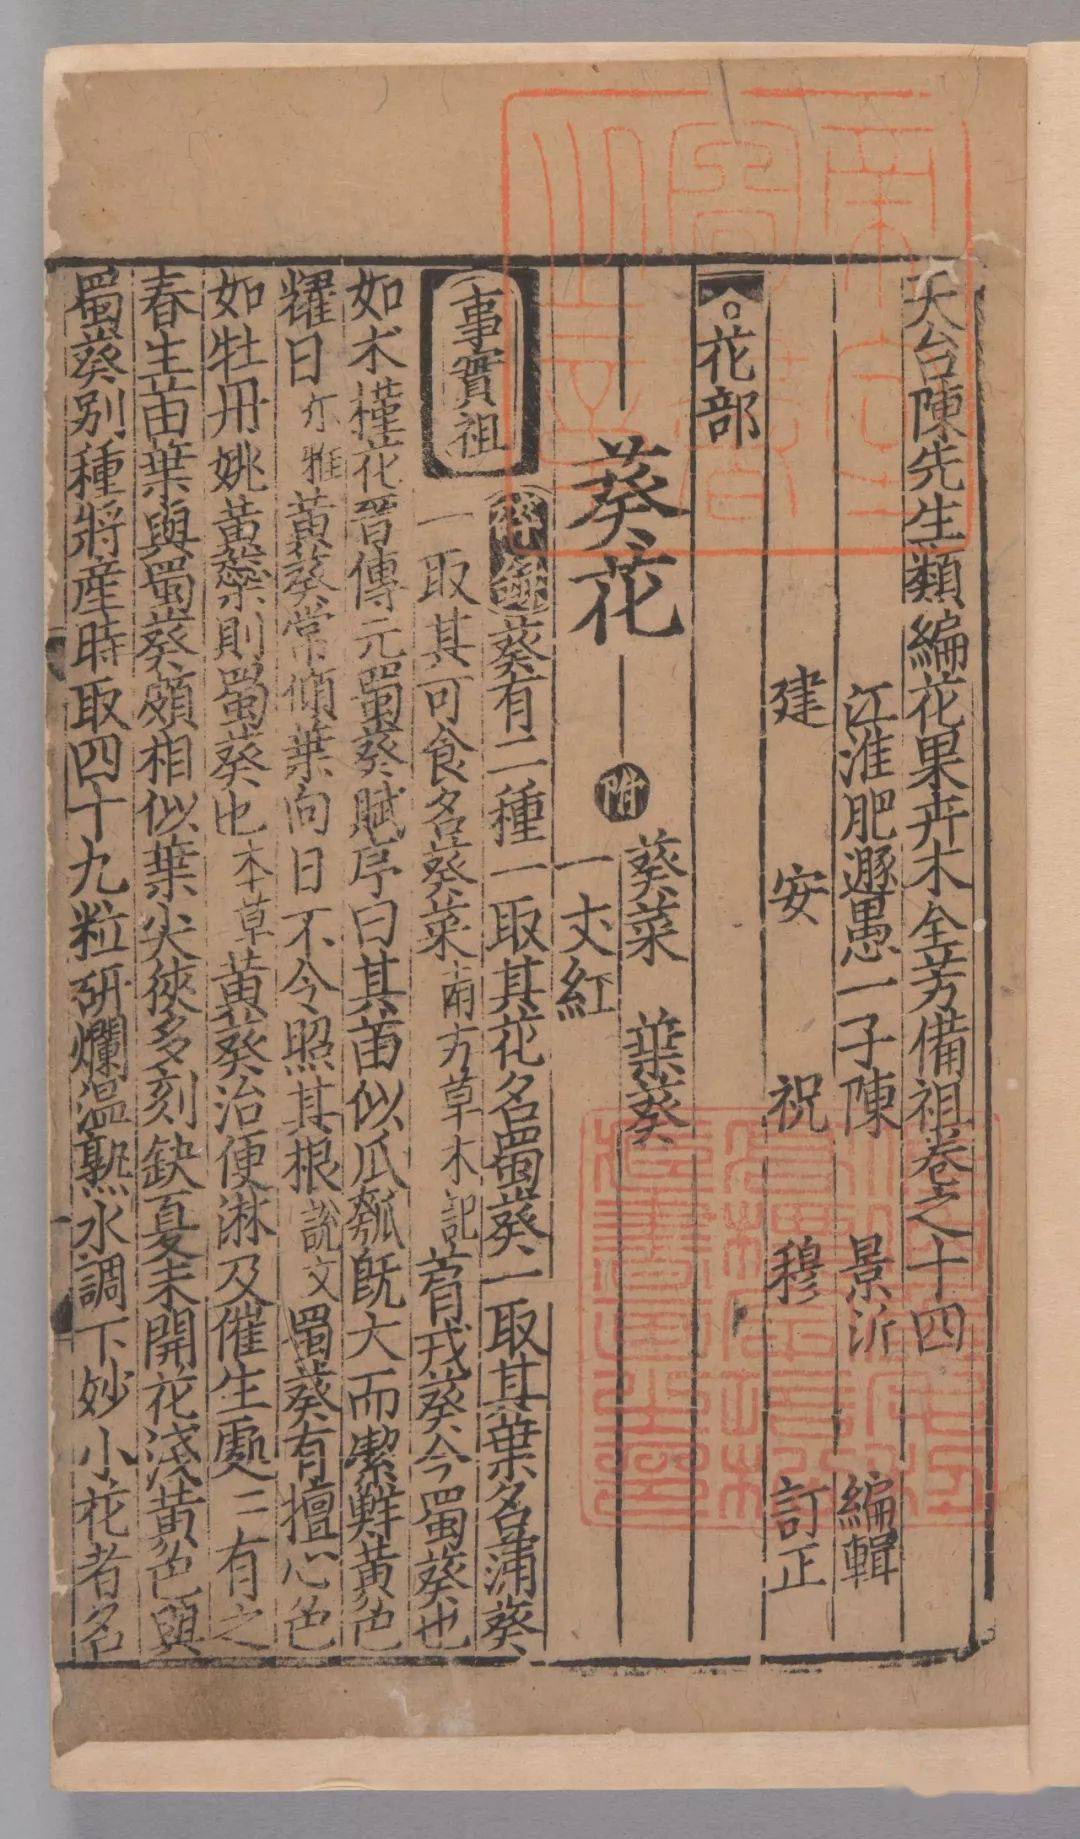 天台陳先生類編花果卉木全芳備祖卷之十四
江淮肥遯愚一子陳 景沂 編輯
建安 祝 穆 訂正
花部
葵花 附 葵菜 葉葵
一丈紅
事實祖
碎錄 葵有二種一取其花名蜀葵一取其葉名蒲葵
一取其可食名葵菜 南方草木記 菺戎葵今蜀葵也
如木槿花 晋傅元蜀葵賦序曰其苗似瓜瓠既大而潔鮮黄色
耀日 尔雅 黄葵常傾葉向日不令照其根 說文 蜀葵有擅心色
如牡丹姚黄蘂則蜀葵也 本草 黄葵治便淋及催生䖏二有之
春生苗葉與蜀葵頗相似葉尖狹多刻缺夏末開花淺黄色與
蜀葵别種將産時取四十九粒研爛温熟水調下妙小花者名